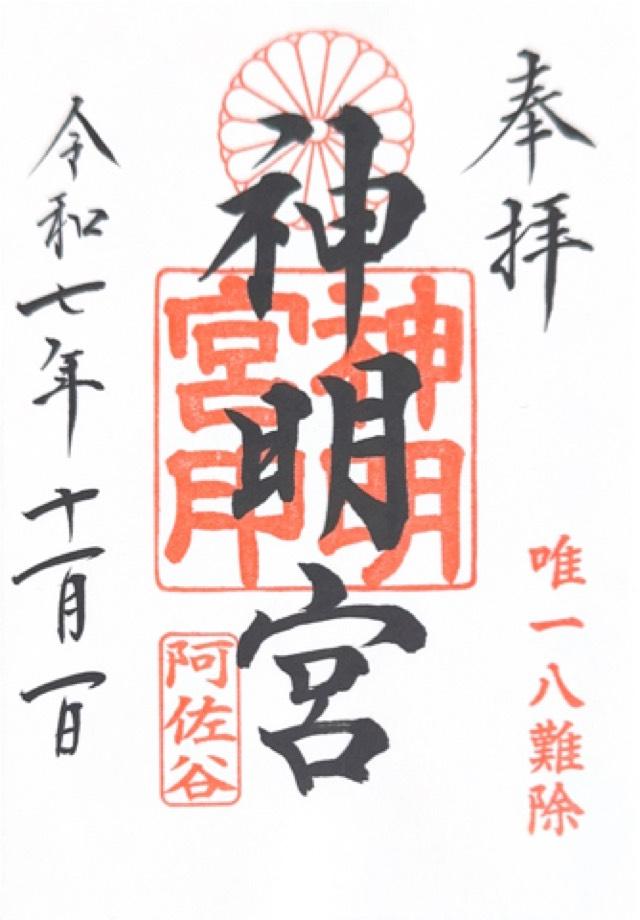 奉拝
唯一八難除
神明宮
神明宮印
阿佐谷
令和七年十一月一日